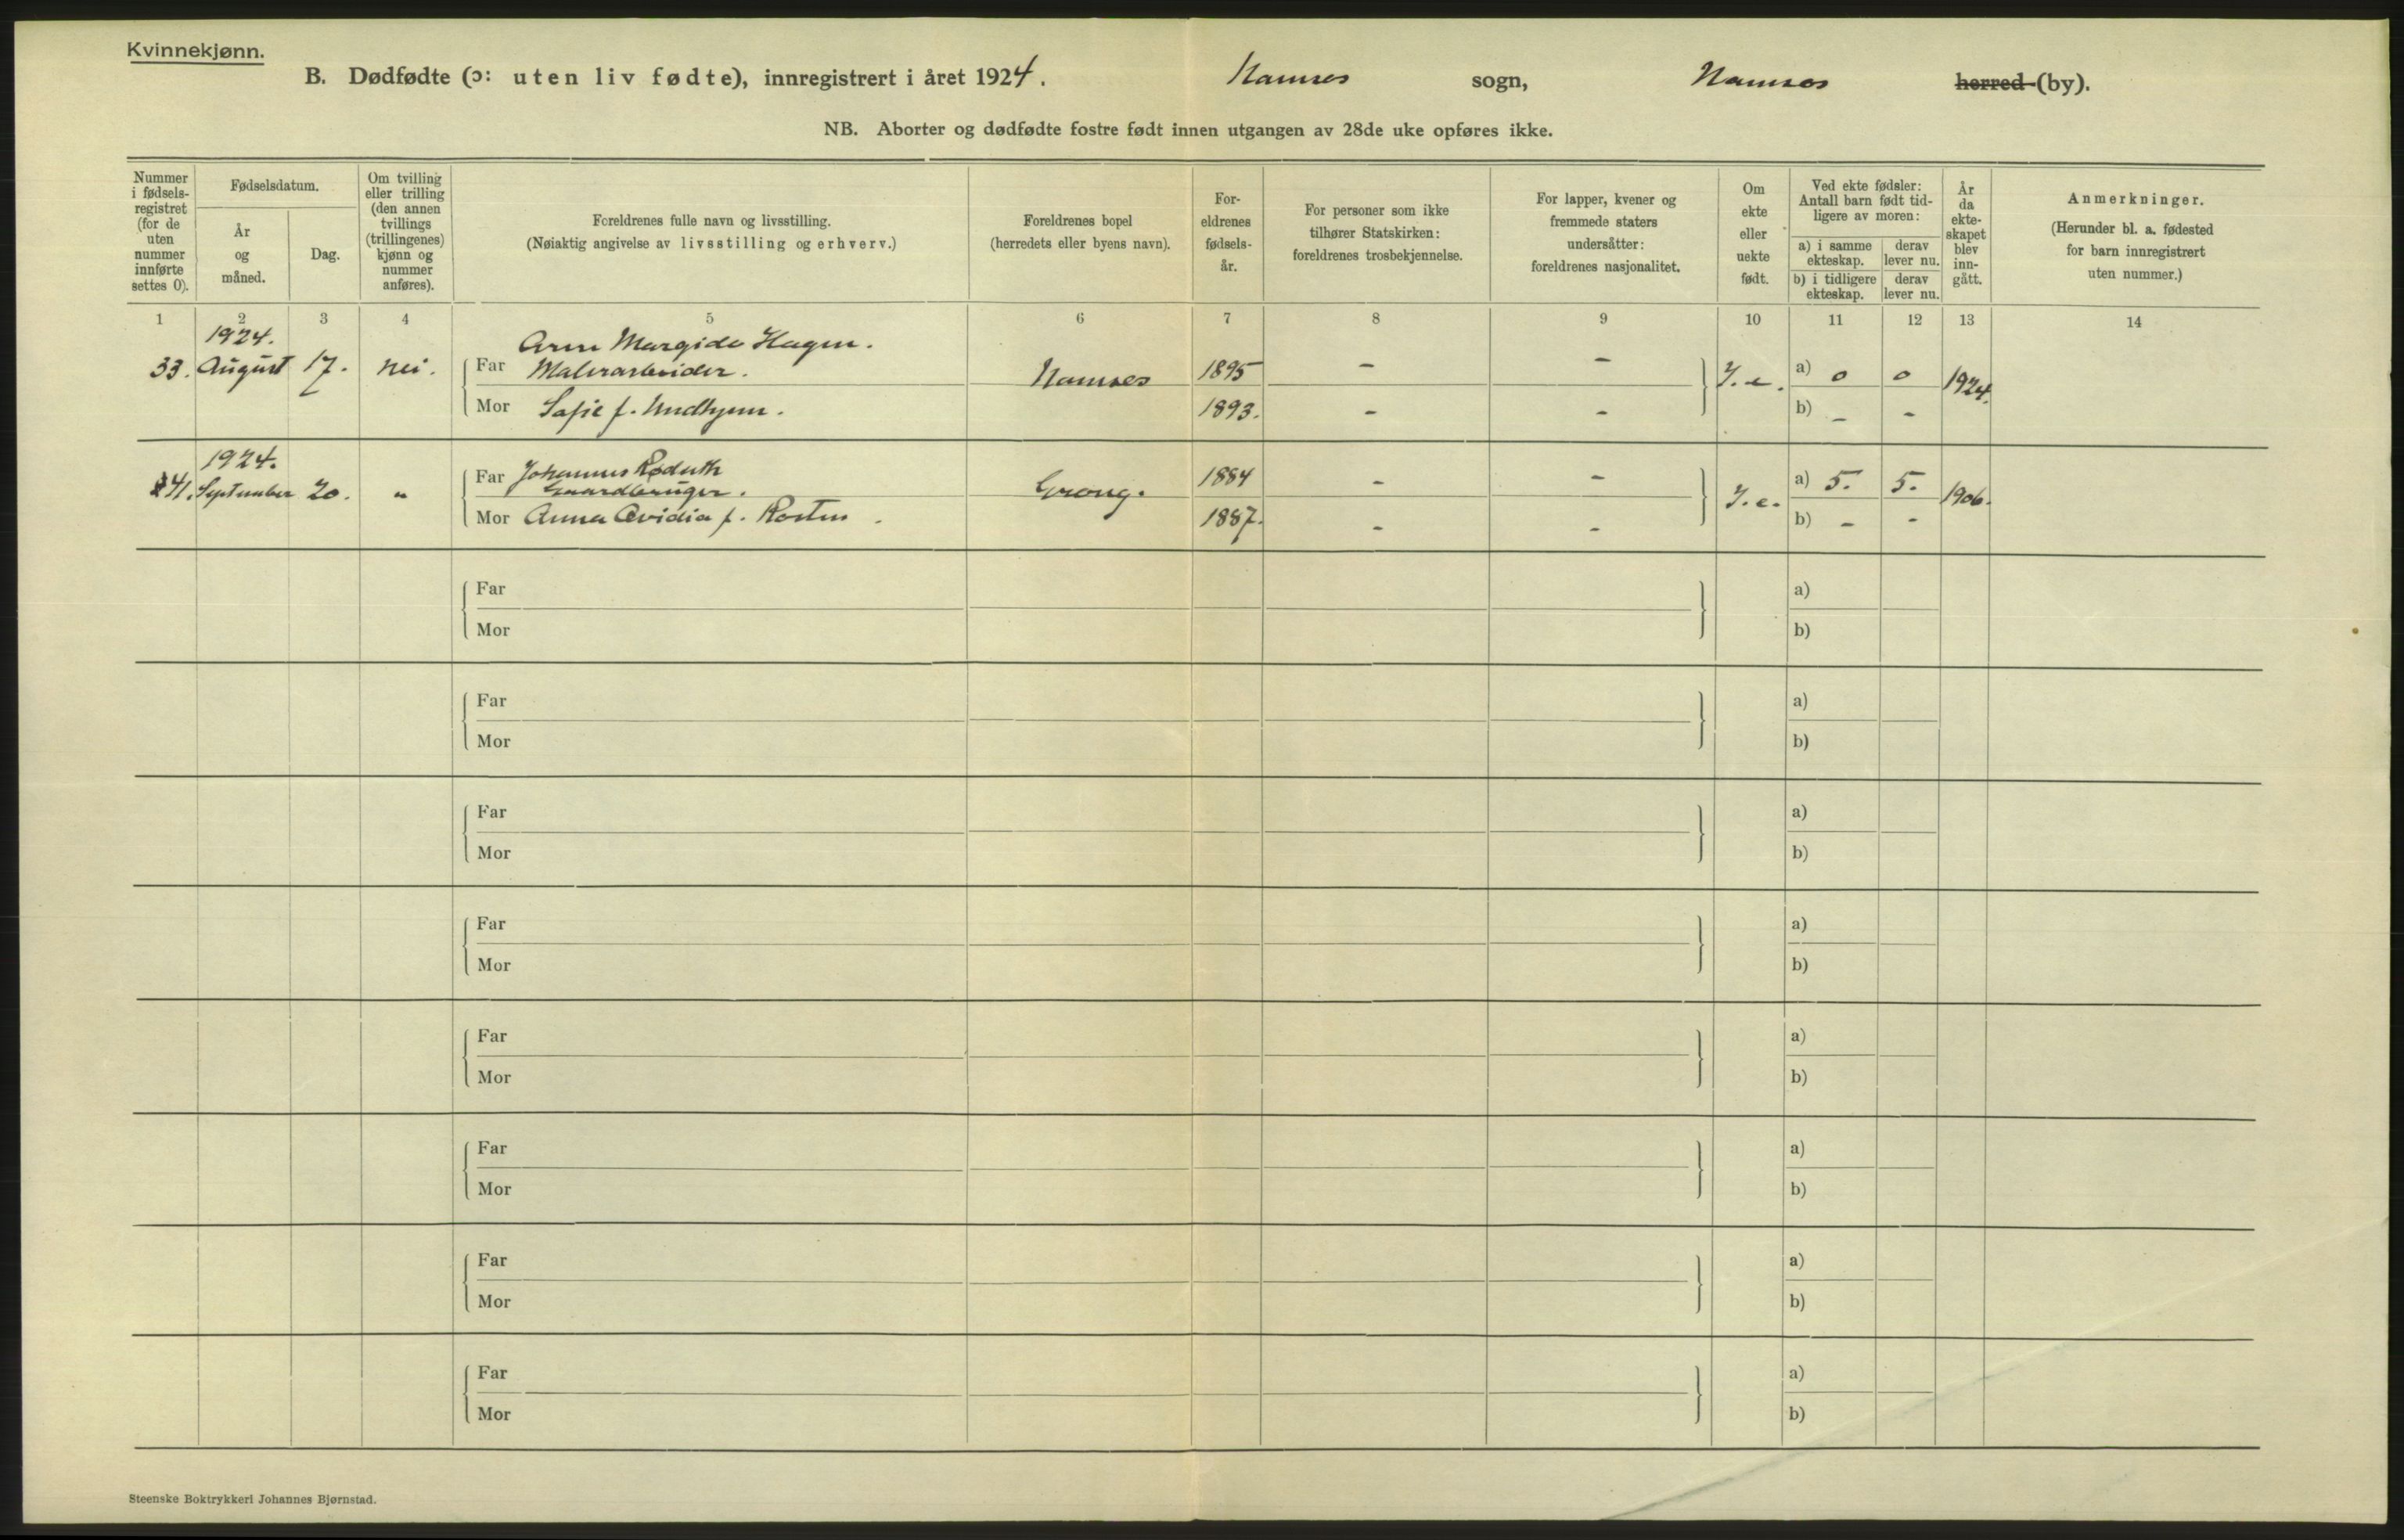 Kvinnekjønn.
B. Dødfødte (ɔ: uten liv fødte), innregistrert i året 1924. Namsos sogn, Namsos herred (by).
NB. Aborter og dødfødte fostre født innen utgangen av 28de uke opføres ikke.
Nummer i fødsels-registret (for de uten nummer innførte settes 0).
Fødselsdatum.
År og måned.
Dag.
Om tvilling eller trilling (den annen tvillings (trillingenes) kjønn og nummer anføres).
Foreldrenes fulle navn og livsstilling.
(Nøiaktig angivelse av livsstilling og erhverv.)
Foreldrenes bopel
(herredets eller byens navn).
For-eldrenes fødsels-år.
For personer som ikke tilhører Statskirken: foreldrenes trosbekjennelse.
For lapper, kvener og fremmede staters undersåtter: foreldrenes nasjonalitet.
Om ekte eller uekte født.
Ved ekte fødsler: Antall barn født tid-ligere av moren:
a) i samme ekteskap. derav lever nu.
b) i tidligere ekteskap. derav lever nu.
År da ekte-skapet blev inn-gått.
Anmerkninger.
(Herunder bl. a. fødested for barn innregistrert uten nummer.)
1 2 3 4 5 6 7 8 9 10 11 12 13 14
1924. Arne Margido Hagen.
33. August 17. nei. Far Malerarbeider. Namsos 1895 - - a) 0 0 1924.
Mor Safie f. 1893. - - b) - -
1924.
41. September 20. " Far Johannes Gaardbruger. Grong. 1884 - - a) 5. 5. 1906.
Mor Anna Ovidia f. 1887. - - b) - -
Far a)
Mor b)
Far a)
Mor b)
Far a)
Mor b)
Far a)
Mor b)
Far a)
Mor b)
Far a)
Mor b)
Far a)
Mor b)
Far a)
Mor b)
Steenske Boktrykkeri Johannes Bjørnstad.